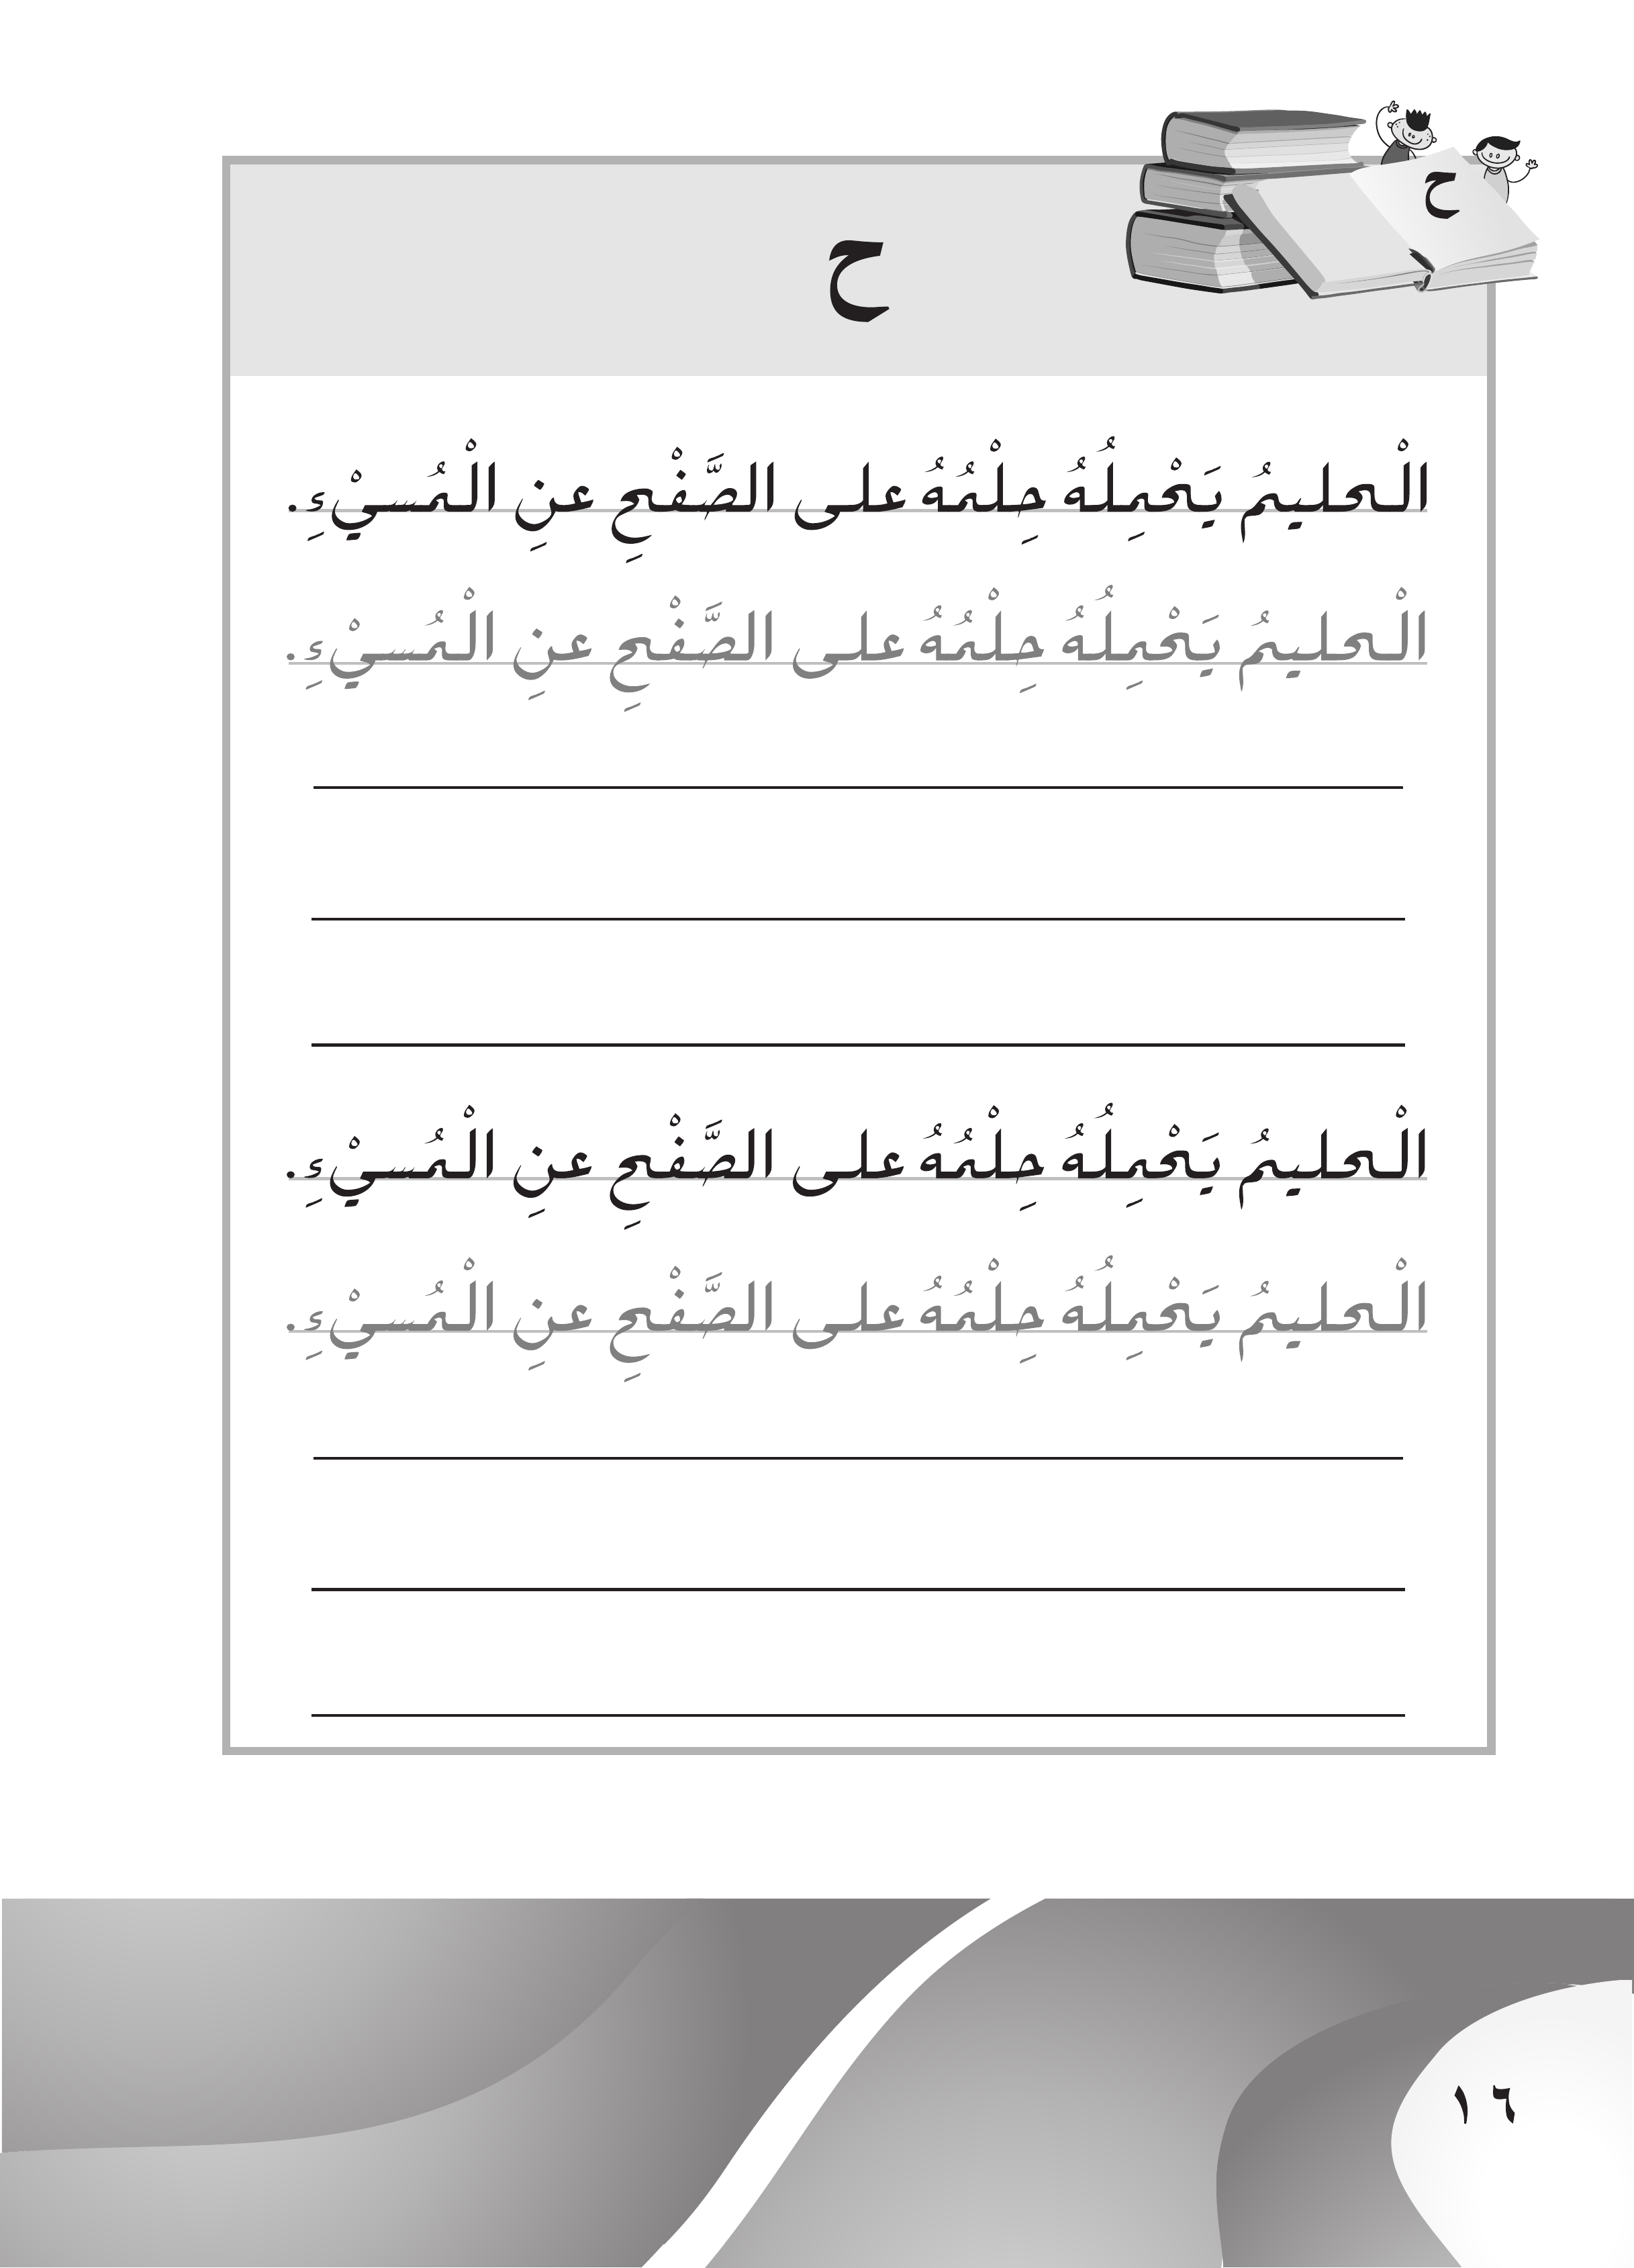 ح
ح
الْحليمُ يَحْمِلُهُ حِلْمُهُ على الصَّفْحِ عنِ الْمُسيْءِ.
الْحليمُ يَحْمِلُهُ حِلْمُهُ على الصَّفْحِ عنِ الْمُسيْءِ.
الْحليمُ يَحْمِلُهُ حِلْمُهُ على الصَّفْحِ عنِ الْمُسيْءِ.
الْحليمُ يَحْمِلُهُ حِلْمُهُ على الصَّفْحِ عنِ الْمُسيْءِ.
١٦